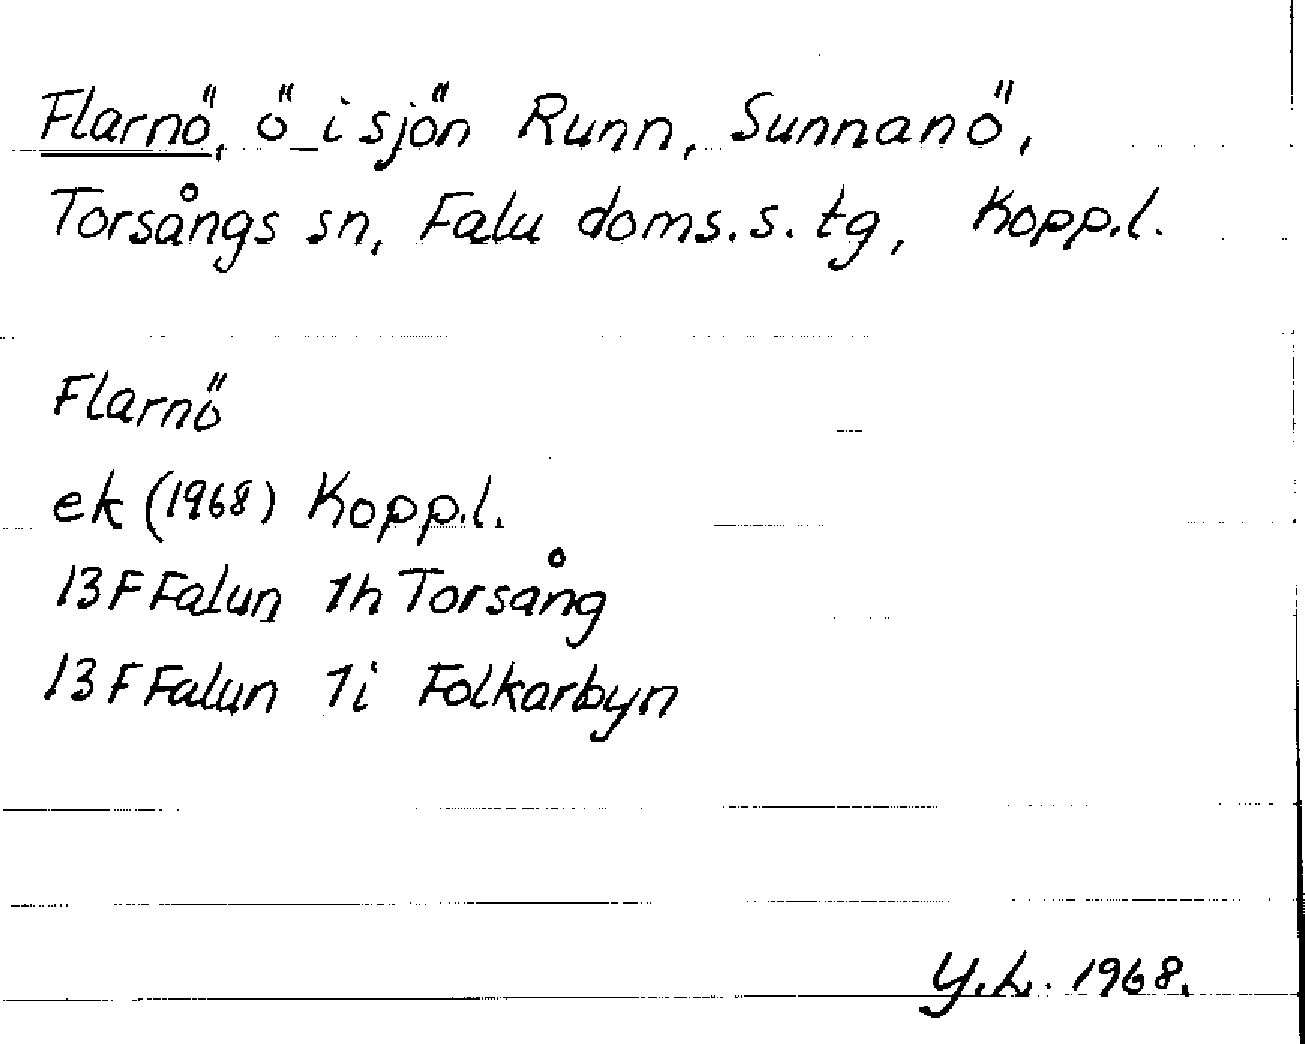 Flarnö, ö i sjön Runn, Sunnanö,
Torsångs sn, Falu doms.s. tg, Kopp.l.
Flarnö
ek (1968) Kopp.l.
13F Falun 1h Torsång
13F Falun 1i Folkarbyn
Y.L. 1968.